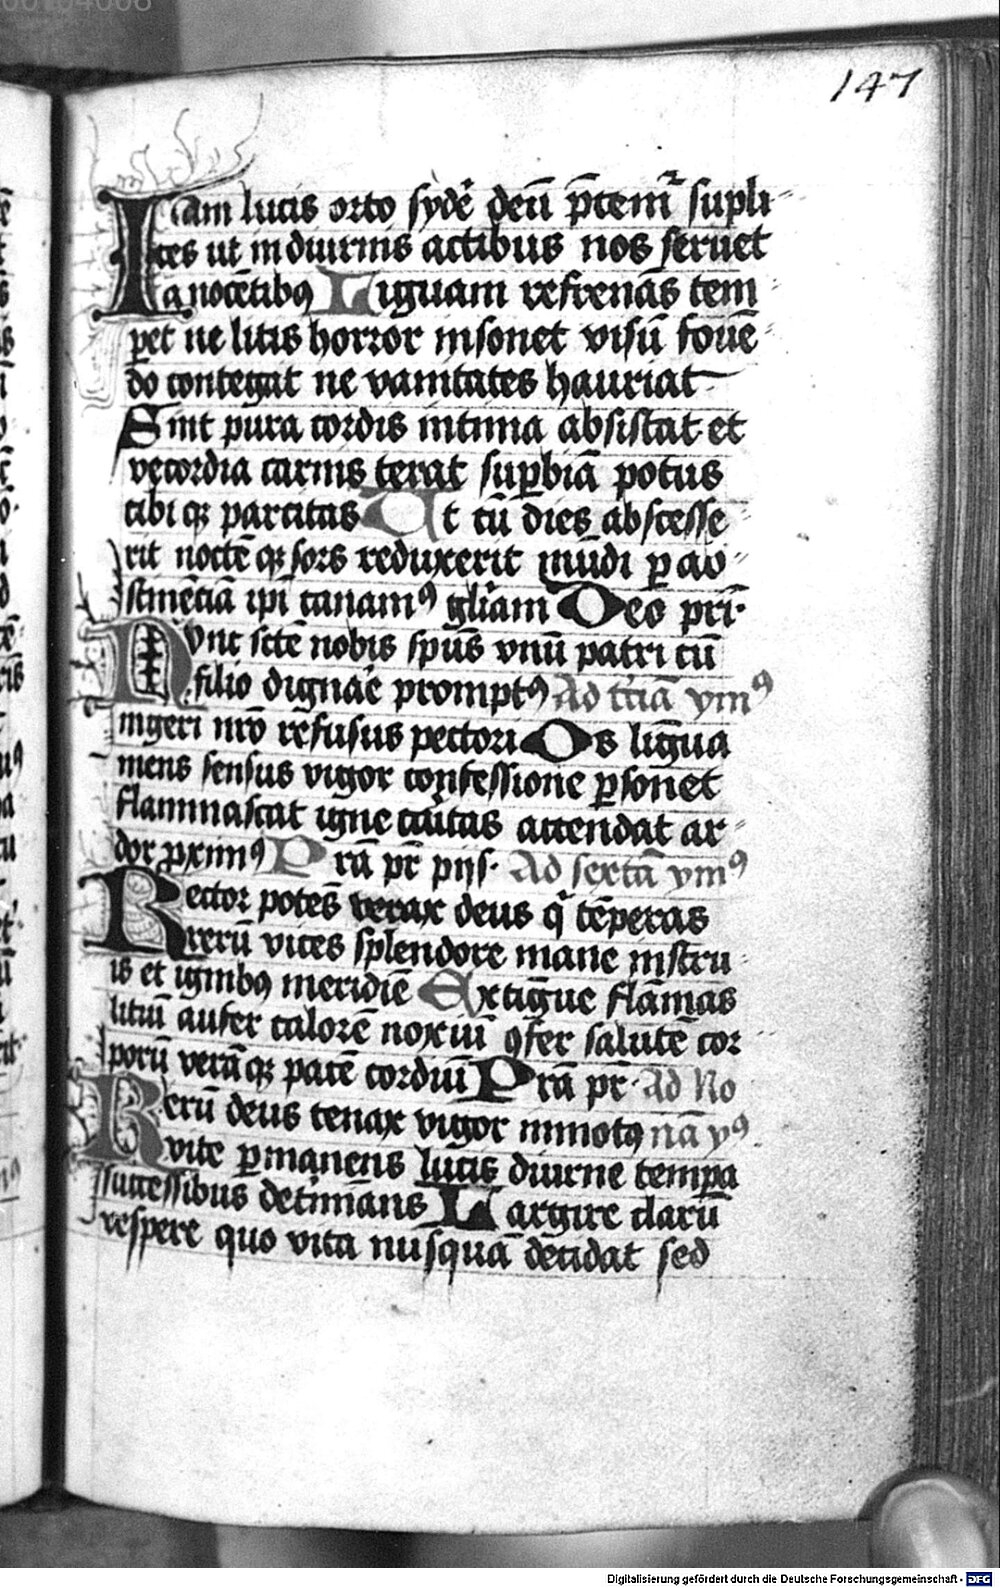 147
Iam lucis orto syde᷒ deū p̄cem᷒ supli
ces ut in diurnis actibus nos seruet
a nocētibꝰ Liguam refrenās tem
pet ne litis horror insonet visū fouē
do contegat ne vanitates hauriat
Sint pura cordis intima absistat et
vecordia carnis terat suꝑbiā potus
cibi qꝫ parcitas Ut cū dies abscesse
rit noctē qꝫ sors reduxerit mūdi ꝑ ab
stinētiā ipī canamꝰ gl̄iam Deo pri·
Nvnc sctē nobis spūs vnū patri cū
filio dignāe promptꝰ Ad t̄ciā ymꝰ
ingeri nr̄o refusus pectori Os lingua
mens sensus vigor confessione ꝑsonet
flammascat igne cāitas accendat ar
dor ꝓximꝰ Prā pr̄ piis· Ad sextā ymꝰ
Rector potēs verax deus q̄ tēperas
rerū vices splendore mane instru
is et ignibꝰ meridiē Extingue flāmas
litiū aufer calorē noxiū ꝯfer salutē cor
porū verāqꝫ pacē cordiū Prā pr̄· Ad No
Rerū deus tenax vigor inmotꝰ nā yꝰ
vite ꝑmanens lucis diurne tempa
successibus det̄mināns Largire clarū
vespere quo vita nusquā decidat sed
Digitalisierung gefördert durch die Deutsche Forschungsgemeinschaft - DFG